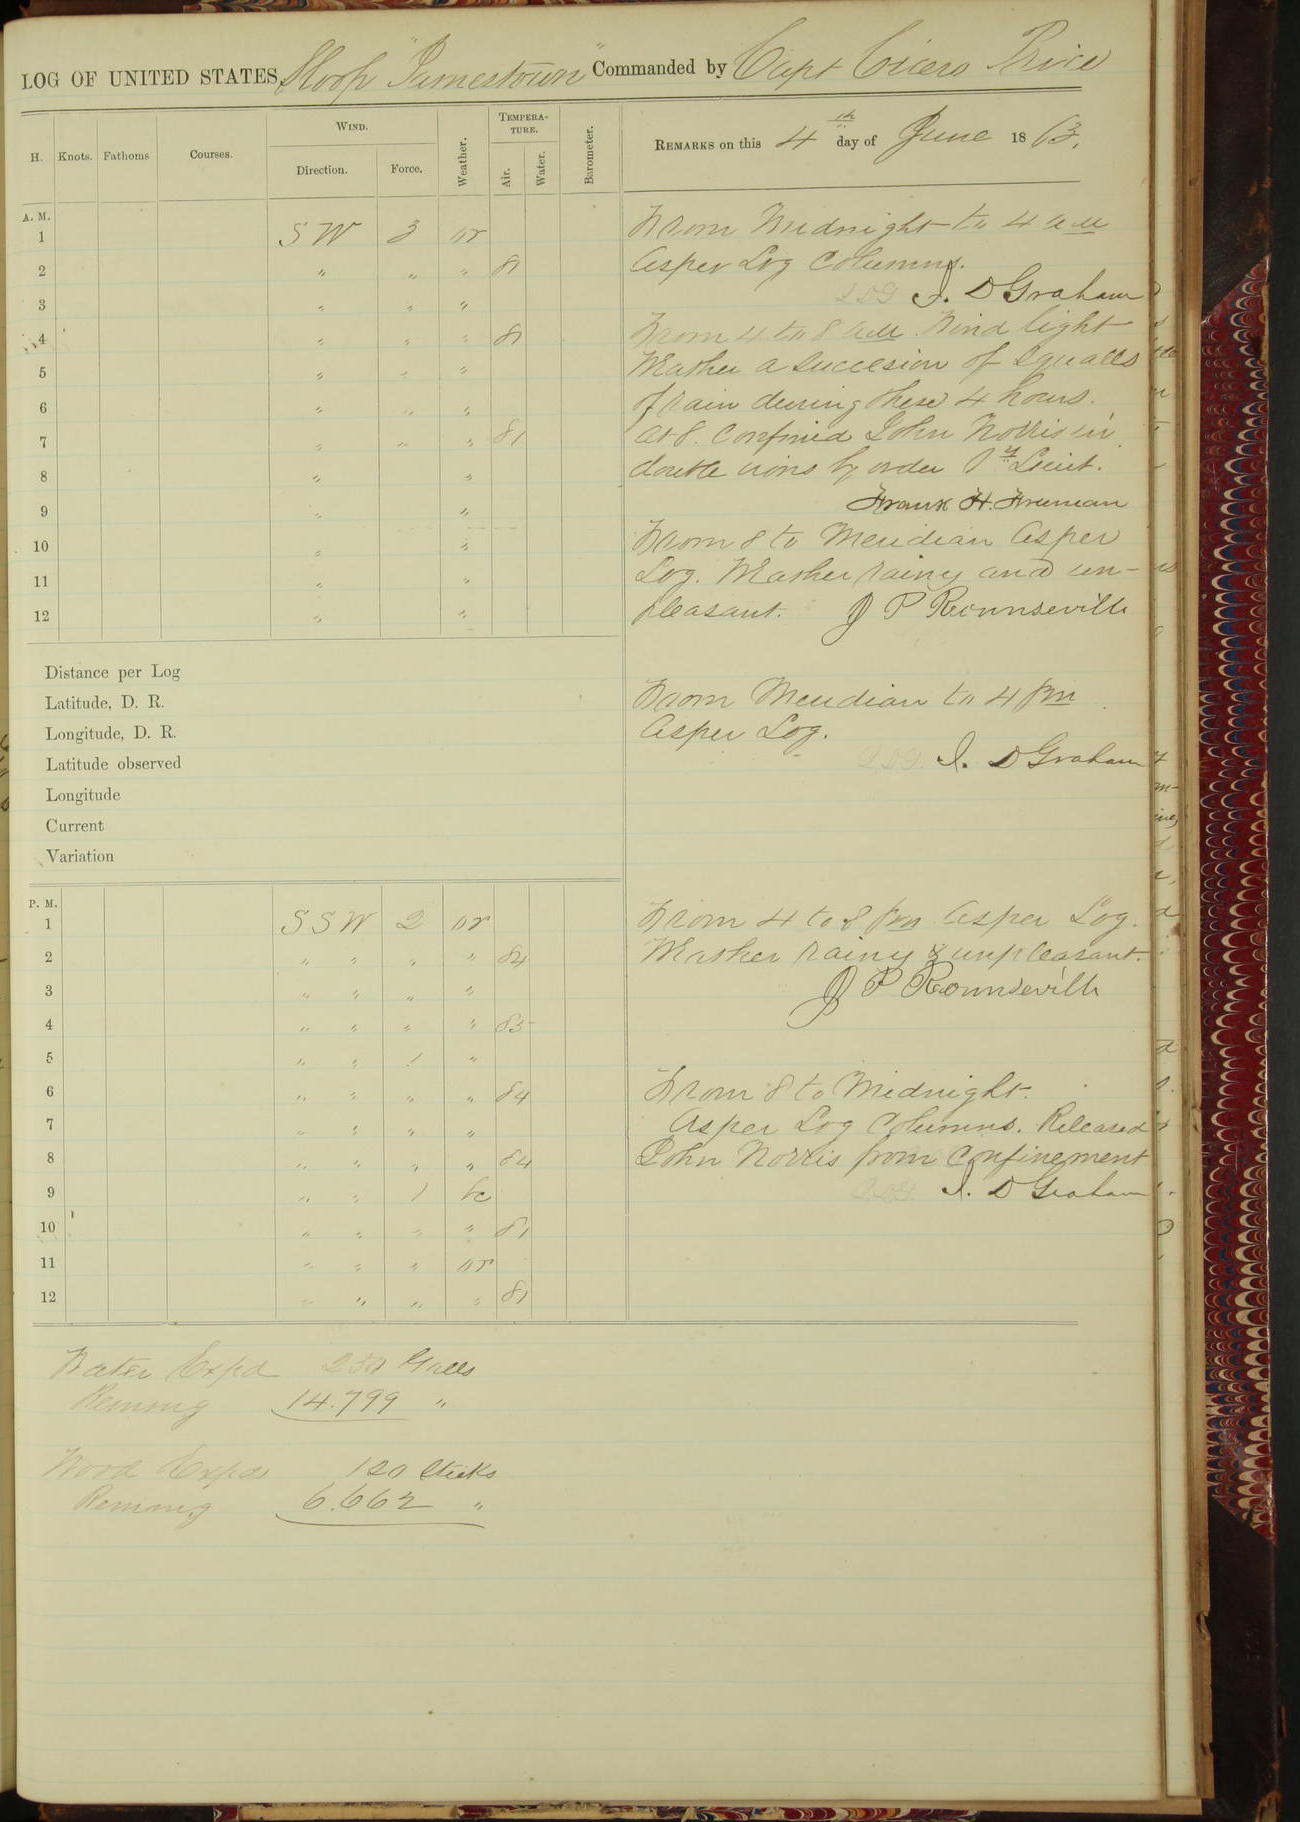 LOG OF UNITED STATES Sloop "Jamestown" Commanded by Capt Cicero Price
H. Knots. Fathoms Courses. WIND. Direction. Force. Weather. TEMPERATURE. Air. Water. Barometer. REMARKS on this 4th day of June 1863.
A. M.
1 SW 3 or
2 " " " 81
3 " " "
4 " " " 81
5 " " "
6 " " "
7 " " " 81
8 " "
9 " "
10 " "
11 " "
12 " "
From Midnight to 4 am
As per Log Columns.
I. D Graham
From 4 to 8 am Wind light
Weather a succesion of squalls
of rain during these 4 hours.
At 8. confined John Norris in
double irons by order 1st Lieut.
Frank H.
From 8 to Meridian As per
Log. Weather rainy and un-
pleasant. J P Rounseville
Distance per Log
Latitude, D. R.
Longitude, D. R.
Latitude observed
Longitude
Current
Variation
From Meridian to 4 pm
As per Log.
I. D Graham
P. M.
1 SSW 2 or
2 " " " " 84
3 " " " "
4 " " " " 85
5 " " 1 "
6 " " " " 84
7 " " " "
8 " " " " 84
9 " " 1 bc
10 " " " " 81
11 " " " or
12 " " " " 81
From 4 to 8 pm As per Log.
Weather rainy & unpleasant.
J P Rounseville
From 8 to Midnight.
As per Log Columns. Released
John Norris from Confinement
I. D Graham
Water Expd 250 Galls
Remng 14.799 "
Wood Expd 120 Sticks
Remng 6.662 "